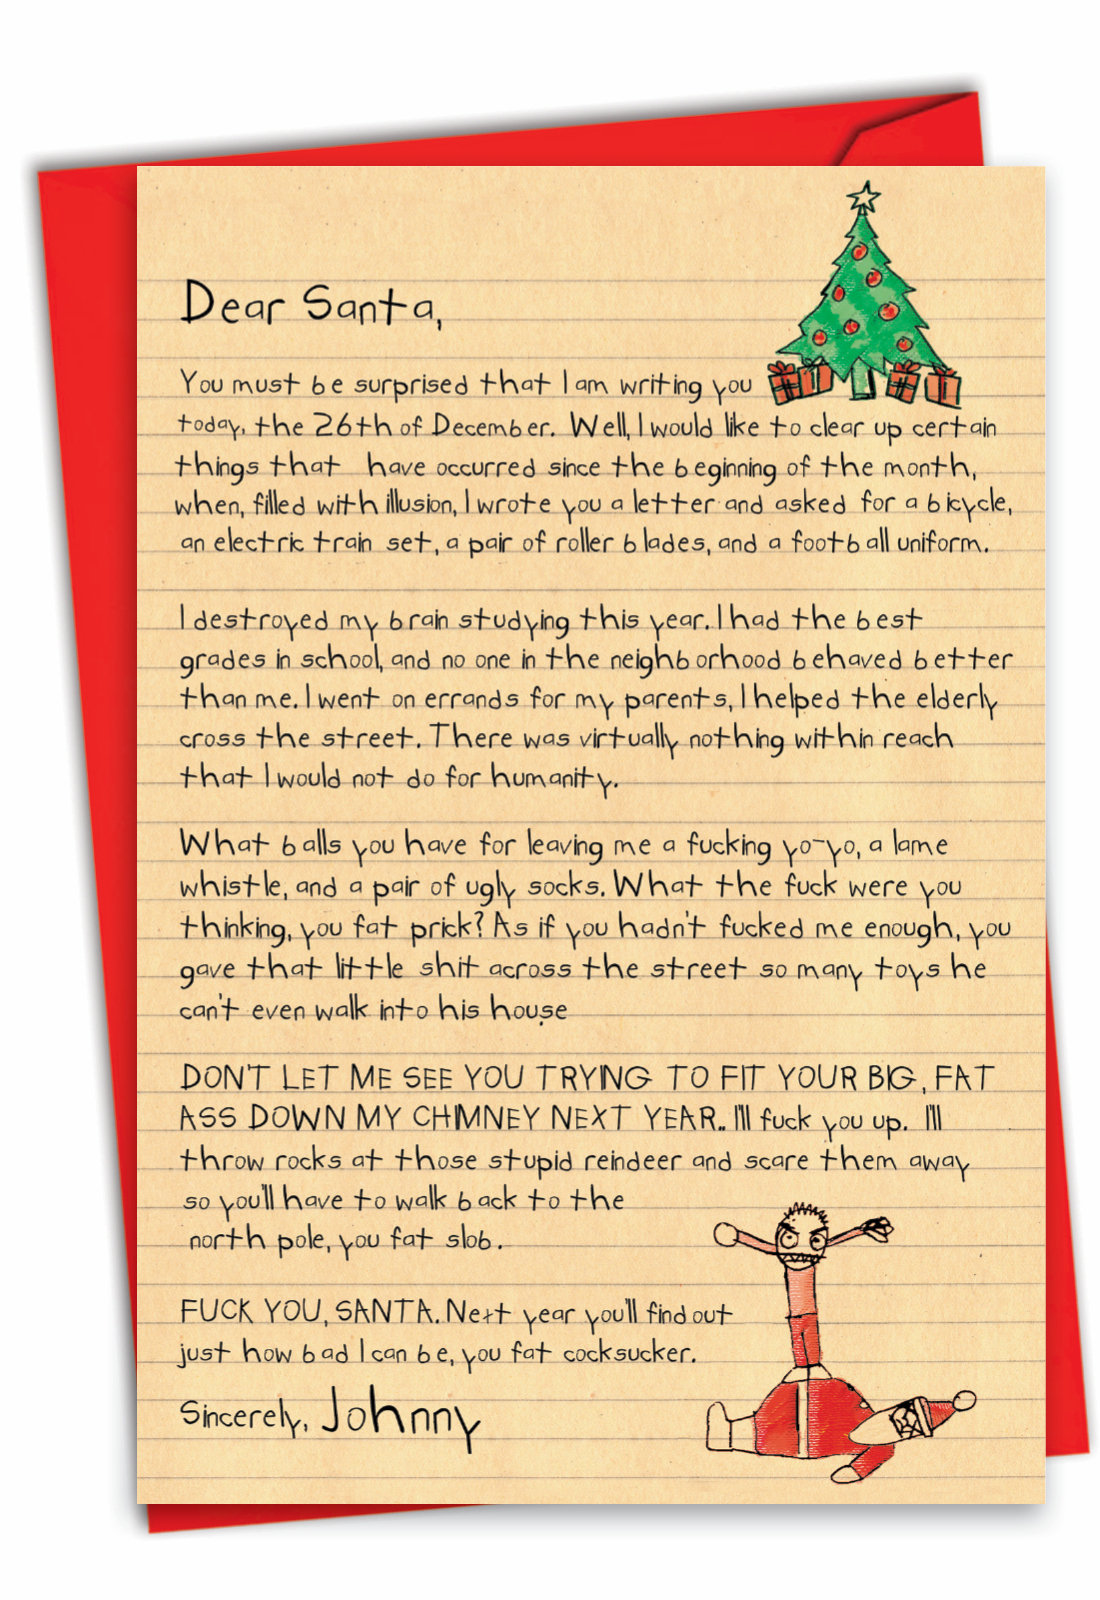 Dear Santa,
You must be surprised that I am writing you
today, the 26th of December. Well, I would like to clear up certain
things that have occurred since the beginning of the month,
when, filled with illusion, I wrote you a letter and asked for a bicycle,
an electric train set, a pair of roller blades, and a football uniform.
I destroyed my brain studying this year. I had the best
grades in school, and no one in the neighborhood behaved better
than me. I went on errands for my parents, I helped the elderly
cross the street. There was virtually nothing within reach
that I would not do for humanity.
What balls you have for leaving me a fucking yo-yo, a lame
whistle, and a pair of ugly socks. What the fuck were you
thinking, you fat prick? As if you hadn't fucked me enough, you
gave that little shit across the street so many toys he
can't even walk into his house
DON'T LET ME SEE YOU TRYING TO FIT YOUR BIG, FAT
ASS DOWN MY CHIMNEY NEXT YEAR.. I'll fuck you up. I'll
throw rocks at those stupid reindeer and scare them away
so you'll have to walk back to the
north pole, you fat slob.
FUCK YOU, SANTA. Next year you'll find out
just how bad I can be, you fat cocksucker.
Sincerely, Johnny